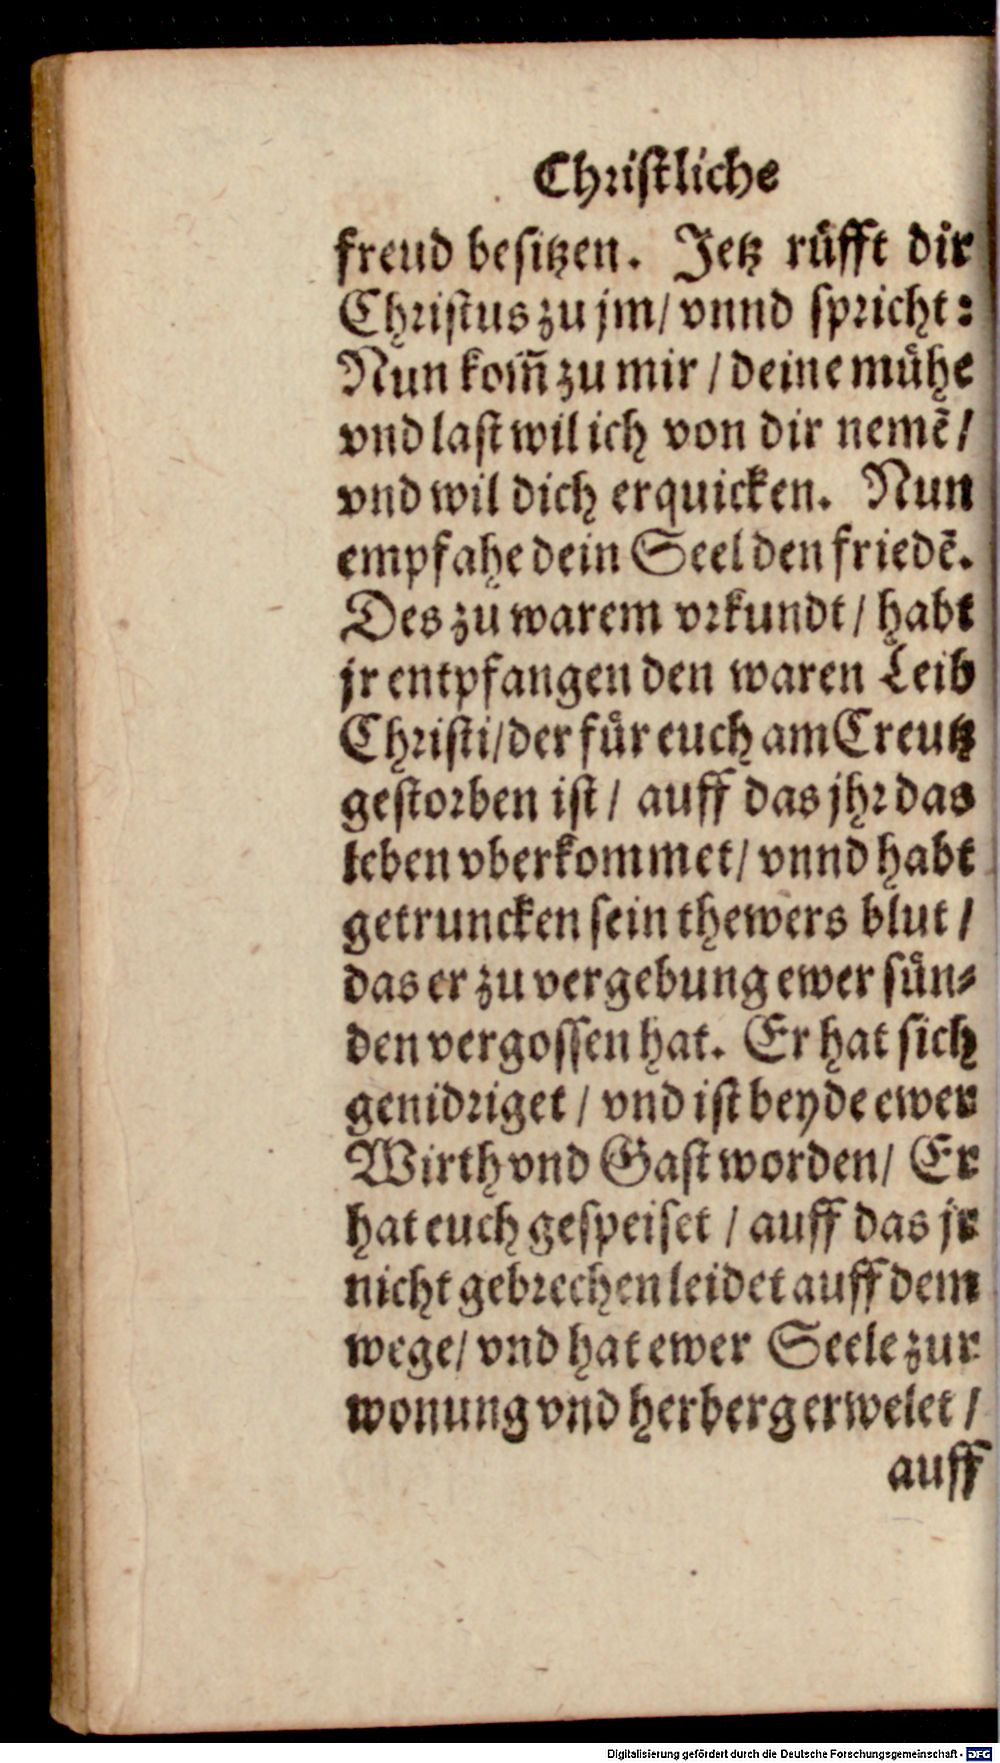 Christliche
freud besitzen. Jetz rüfft dir
Christus zu jm/ vnnd spricht:
Nun kom̃ zu mir / deine mühe
vnd last wil ich von dir nemẽ /
vnd wil dich erquicken. Nun
empfahe dein Seel den friedẽ.
Des zu warem vrkundt / habt
jr entpfangen den waren Leib
Christi/der für euch am Creutz
gestorben ist / auff das jhr das
leben vberkommet/ vnnd habt
getruncken sein thewers blut /
das er zu vergebung ewer sün⸗
den vergossen hat. Er hat sich
genidriget / vnd ist beyde ewer
Wirth vnd Gast worden/ Er
hat euch gespeiset / auff das jr
nicht gebrechen leidet auff dem
wege/ vnd hat ewer Seele zur
wonung vnd herberg erwelet /
auff
Digitalisierung gefördert durch die Deutsche Forschungsgemeinschaft - DFG